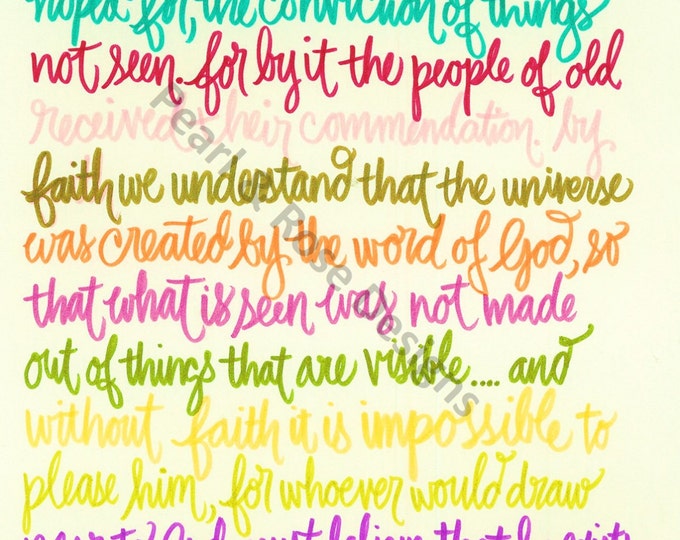 hoped for, the conviction of things
not seen. for by it the people of old
received their commendation. by
faith we understand that the universe
was created by the word of God, so
that what is seen was not made
out of things that are visible.... and
without faith it is impossible to
please him, for whoever would draw
near to God must believe that he exists
Pearl & Rose Designs